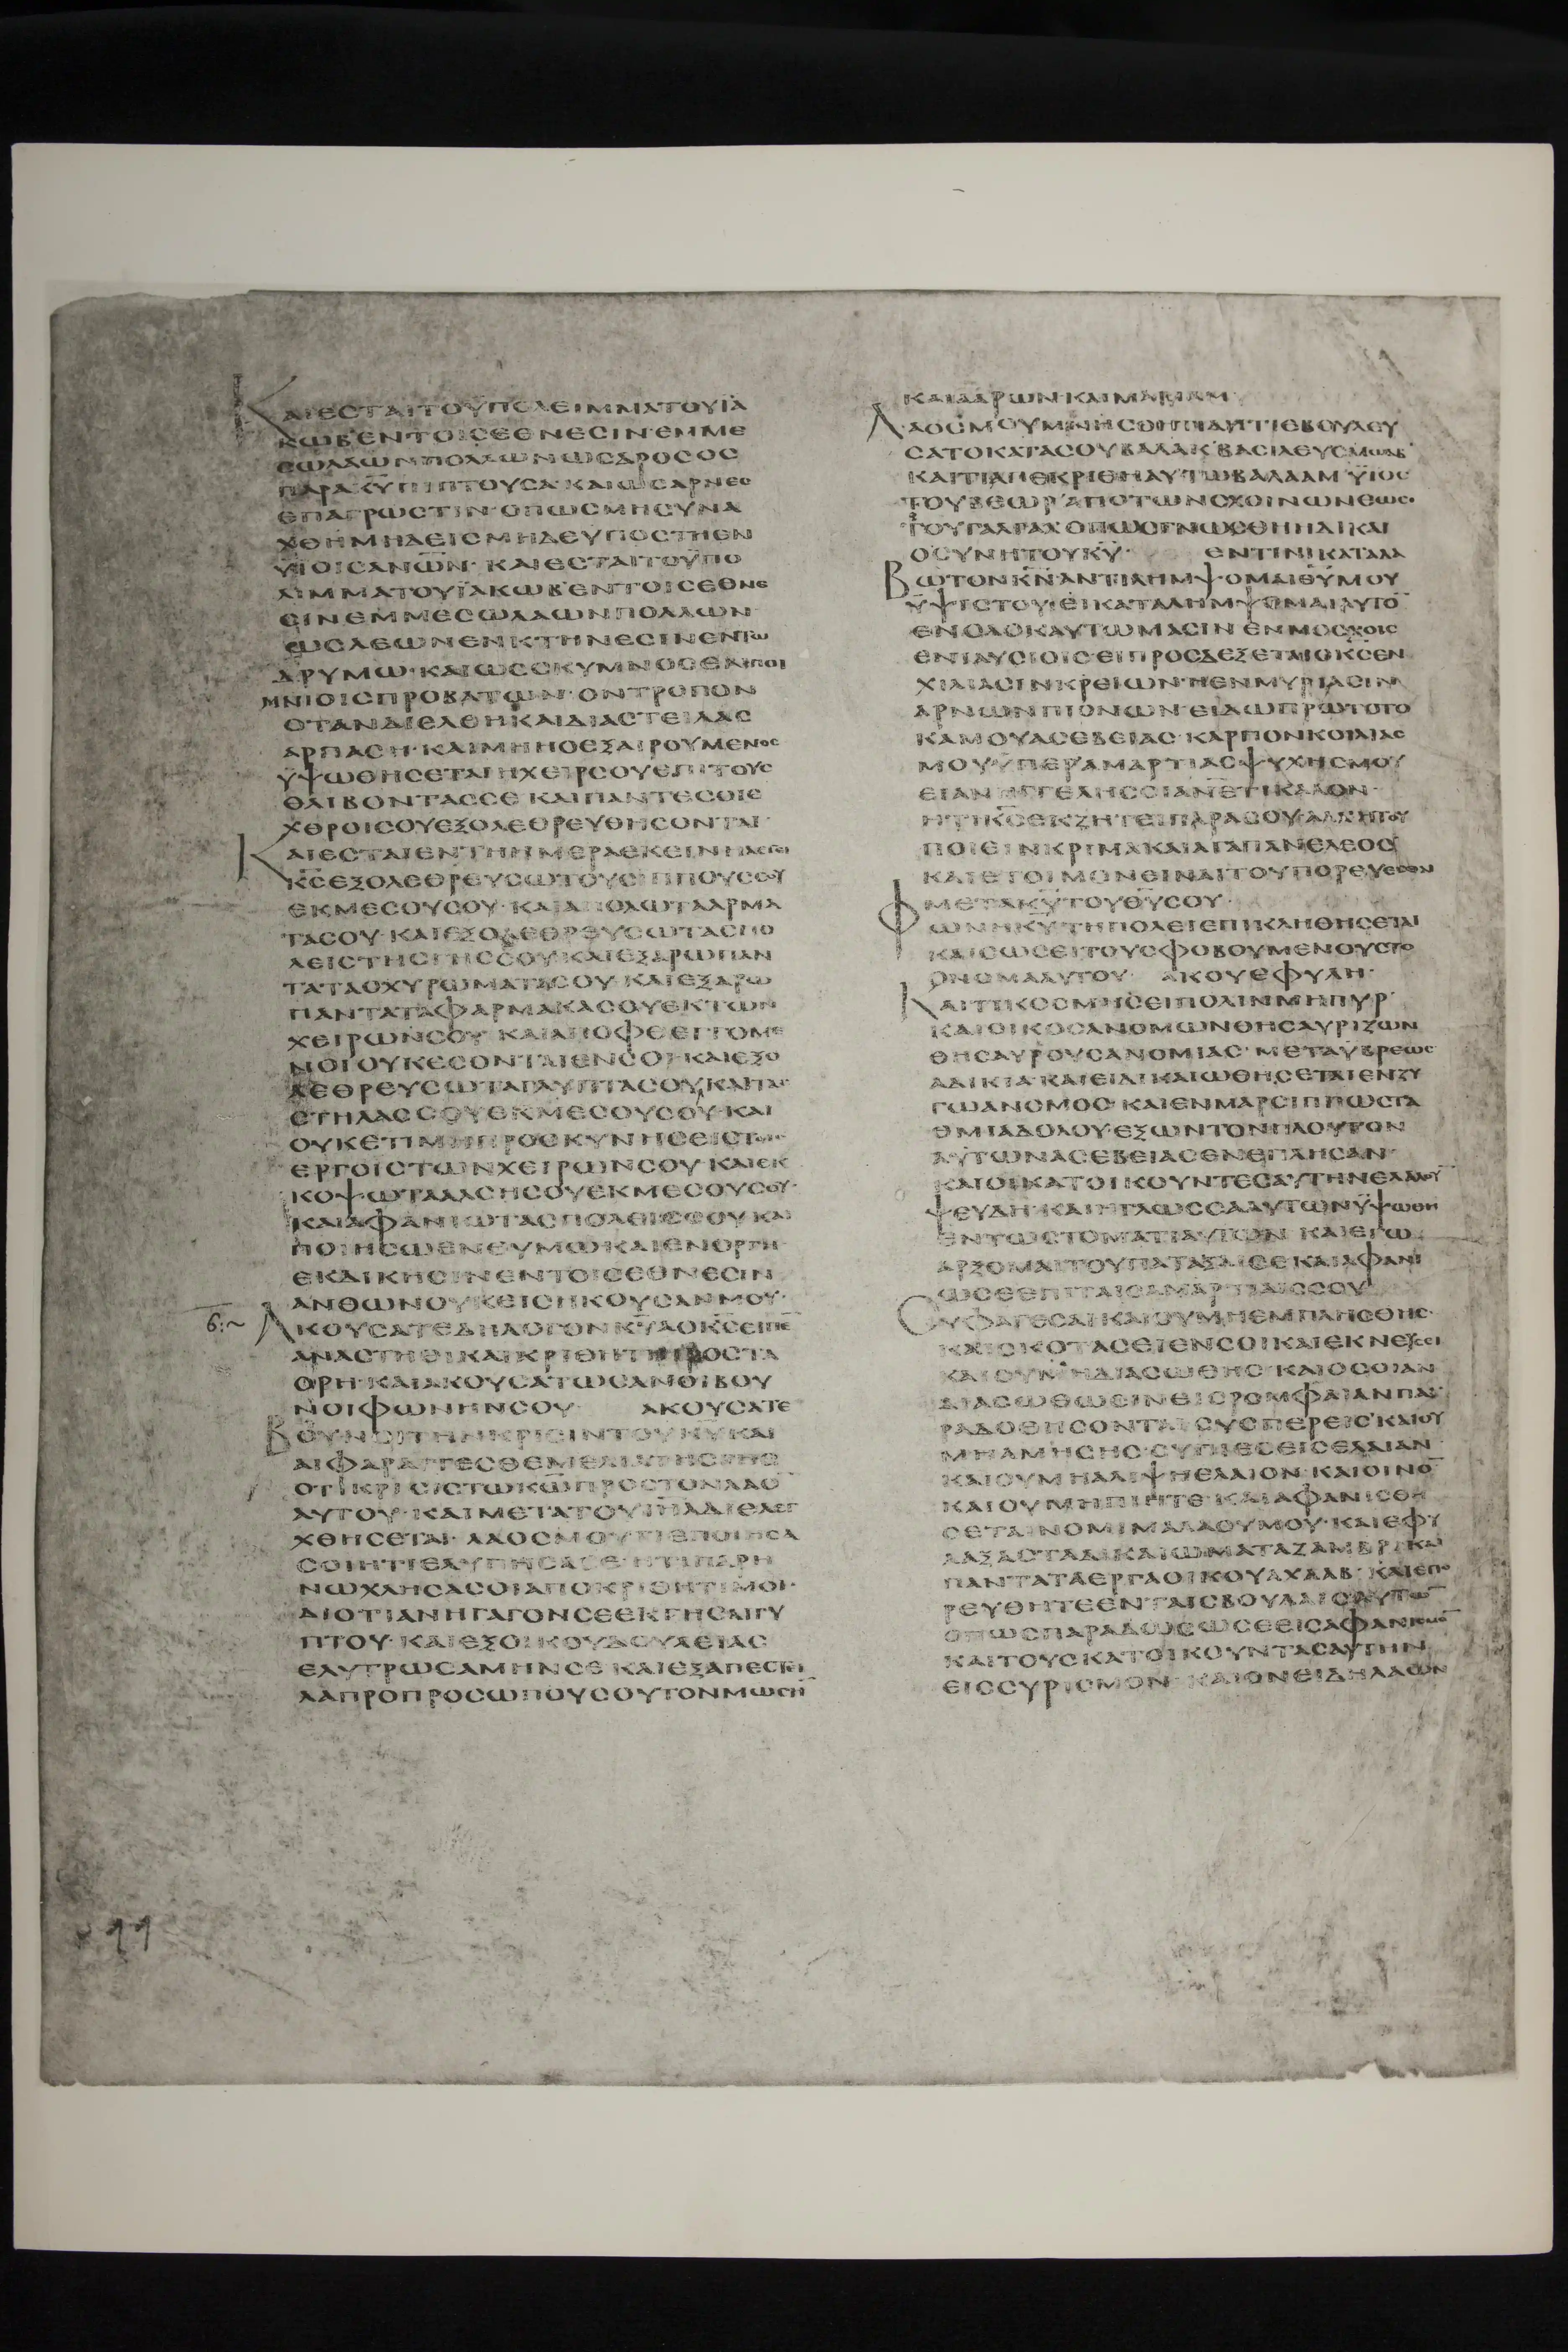 ΚΑΙΕCΤΑΙΤΟΫΠΟΛΕΙΜΜΑΤΟΥΪΑ
ΚΩΒ·ΕΝΤΟΙCΕΘΝΕCΙΝ·ΕΜΜΕ
CΩΛΑΩΝΠΟΛΛΩΝΩCΔΡΟCΟC
ΠΑΡΑΚ̅Υ̅ΠΙΠΤΟΥCΑ·ΚΑΙΩCΑΡΝΕC
ΕΠΑΓΡΩCΤΙΝ·ΟΠΩCΜΗCΥΝΑ
ΧΘΗΜΗΔΕΙCΜΗΔΕΥΠΟCΤΗΕΝ
ΥΙΟΙCΑΝΩ̅Ν̅·ΚΑΙΕCΤΑΙΤΟΫΠΟ
ΛΙΜΜΑΤΟΥΪΑΚΩΒ·ΕΝΤΟΙCΕΘΝΕ
CΙΝΕΜΜΕCΩΛΑΩΝΠΟΛΛΩΝ·
ΩCΛΕΩΝΕΝΚΤΗΝΕCΙΝΕΝΤΩ
ΔΡΥΜΩ·ΚΑΙΩCCΚΥΜΝΟCΕΝΠΟΙ
ΜΝΙΟΙCΠΡΟΒΑΤΩΝ·ΟΝΤΡΟΠΟΝ
ΟΤΑΝΔΙΕΛΘΗΚΑΙΔΙΑCΤΕΙΛΑC
ΑΡΠΑCΗ·ΚΑΙΜΗΗΟΕΞΑΙΡΟΥΜΕΝΟC
ΫΨΩΘΗCΕΤΑΙΗΧΕΙΡCΟΥΕΠΙΤΟΥC
ΘΛΙΒΟΝΤΑCCΕ·ΚΑΙΠΑΝΤΕCΟΙΕ
ΧΘΡΟΙCΟΥΕΞΟΛΕΘΡΕΥΘΗCΟΝΤΑΙ·
ΚΑΙΕCΤΑΙΕΝΤΗΗΜΕΡΑΕΚΕΙΝΗΛΕΓΕΙ
Κ̅C̅ΕΞΟΛΕΘΡΕΥCΩΤΟΥCΙΠΠΟΥCCΟΥ
ΕΚΜΕCΟΥCΟΥ·ΚΑΙΑΠΟΛΩΤΑΑΡΜΑ
ΤΑCΟΥ·ΚΑΙΕΞΟΛΕΘΡΕΥCΩΤΑCΠΟ
ΛΕΙCΤΗCΓΗCCΟΥ·ΚΑΙΕΞΑΡΩΠΑΝ
ΤΑΤΑΟΧΥΡΩΜΑΤΑCΟΥ·ΚΑΙΕΞΑΡΩ
ΠΑΝΤΑΤΑΦΑΡΜΑΚΑCΟΥΕΚΤΩΝ
ΧΕΙΡΩΝCΟΥ·ΚΑΙΑΠΟΦΘΕΓΓΟΜΕ
ΝΟΙΟΥΚΕCΟΝΤΑΙΕΝCΟΙ·ΚΑΙΕΞΟ
ΛΕΘΡΕΥCΩΤΑΓΛΥΠΤΑCΟΥΚΑΙΤΑC
CΤΗΛΑCCΟΥΕΚΜΕCΟΥCΟΥ·ΚΑΙ
ΟΥΚΕΤΙΜΗΠΡΟCΚΥΝΗCΕΙCΤΟΙC
ΕΡΓΟΙCΤΩΝΧΕΙΡΩΝCΟΥ·ΚΑΙΕΚ
ΚΟΨΩΤΑΑΛCΗCΟΥΕΚΜΕCΟΥCΟΥ·
ΚΑΙΑΦΑΝΙΩΤΑCΠΟΛΕΙCCΟΥ·ΚΑΙ
ΠΟΙΗCΩΕΝΘΥΜΩΚΑΙΕΝΟΡΓΗ
ΕΚΔΙΚΗCΙΝΕΝΤΟΙCΕΘΝΕCΙΝ
ΑΝΘΩΝΟΥΚΕΙCΗΚΟΥCΑΝΜΟΥ·
ΑΚΟΥCΑΤΕΔΗΛΟΓΟΝΚ̅Υ̅ΑΟΚ̅C̅ΕΙΠΕ̅
ΑΝΑCΤΗΘΙΚΑΙΚΡΙΘΗΤΙΠΡΟCΤΑ
ΟΡΗ·ΚΑΙΑΚΟΥCΑΤΩCΑΝΟΙΒΟΥ
ΝΟΙΦΩΝΗΝCΟΥ· ΑΚΟΥCΑΤΕ
ΒΟΥΝΟΙΤΗΝΚΡΙCΙΝΤΟΥΚ̅Υ̅·ΚΑΙ
ΑΙΦΑΡΑΓΓΕCΘΕΜΕΛΙΑΤΗCΓΗC
ΟΤΙΚΡΙCΙCΤΩΚ̅Ω̅ΠΡΟCΤΟΝΛΑΟ̅
ΑΥΤΟΥ·ΚΑΙΜΕΤΑΤΟΥΙ̅Η̅Λ̅ΔΙΕΛΕΓ
ΧΘΗCΕΤΑΙ·ΛΑΟCΜΟΥΤΙΕΠΟΙΗCΑ
CΟΙΗΤΙΕΛΥΠΗCΑCΕ·ΗΤΙΠΑΡΗ
ΝΩΧΛΗCΑCΟΙΑΠΟΚΡΙΘΗΤΙΜΟΙ·
ΔΙΟΤΙΑΝΗΓΑΓΟΝCΕΕΚΓΗCΑΙΓΥ
ΠΤΟΥ·ΚΑΙΕΞΟΙΚΟΥΔΟΥΛΕΙΑC
ΕΛΥΤΡΩCΑΜΗΝCΕ·ΚΑΙΕΞΑΠΕCΤΕΙ
ΛΑΠΡΟΠΡΟCΩΠΟΥCΟΥΤΟΝΜΩCΗ̅
6:~
99
ΚΑΙΑΑΡΩΝ·ΚΑΙΜΑΡΙΑΜ·
ΛΑΟCΜΟΥΜΝΗCΘΗΤΙΔΗΤΙΕΒΟΥΛΕΥ
CΑΤΟΚΑΤΑCΟΥΒΑΛΑΚ·ΒΑCΙΛΕΥCΜΩΑΒ
ΚΑΙΤΙΑΠΕΚΡΙΘΗΑΥΤΩΒΑΛΑΑΜ·ΫΙΟC
ΤΟΥΒΕΩΡ·ΑΠΟΤΩΝCΧΟΙΝΩΝΕΩC
ΤΟΥΓΑΛΓΑΛ·ΟΠΩCΓΝΩCΘΗΗΔΙΚΑΙ
ΟCΥΝΗΤΟΥΚ̅Υ̅· ΕΝΤΙΝΙΚΑΤΑΛΑ
ΒΩΤΟΝΚ̅Ν̅·ΑΝΤΙΛΗΜΨΟΜΑΙΘ̅Υ̅ΜΟΥ
ΫΨΙCΤΟΥ·ΕΙΚΑΤΑΛΗΜΨΟΜΑΙΑΥΤΟ̅
ΕΝΟΛΟΚΑΥΤΩΜΑCΙΝ·ΕΝΜΟCΧΟΙC
ΕΝΙΑΥCΙΟΙC·ΕΙΠΡΟCΔΕΞΕΤΑΙΟΚ̅C̅ΕΝ
ΧΙΛΙΑCΙΝΚΡΕΙΩΝ·ΗΕΝΜΥΡΙΑCΙΝ
ΑΡΝΩΝΠΙΟΝΩΝ·ΕΙΔΩΠΡΩΤΟΤΟ
ΚΑΜΟΥΑCΕΒΕΙΑC·ΚΑΡΠΟΝΚΟΙΛΙΑC
ΜΟΥΫΠΕΡΑΜΑΡΤΙΑCΨΥΧΗCΜΟΥ
ΕΙΑΝΗΓΓΕΛΗCΟΙΑΝ̅Ε̅ΤΙΚΑΛΟΝ·
ΗΤΙΚ̅C̅ΕΚΖΗΤΕΙΠΑΡΑCΟΥ·ΑΛΛΗΤΟΥ
ΠΟΙΕΙΝΚΡΙΜΑΚΑΙΑΓΑΠΑΝΕΛΕΟC
ΚΑΙΕΤΟΙΜΟΝΕΙΝΑΙΤΟΥΠΟΡΕΥΕCΘΑΙ
ΜΕΤΑΚ̅Υ̅ΤΟΥΘ̅Υ̅CΟΥ·
ΦΩΝΗΚ̅Υ̅ΤΗΠΟΛΕΙΕΠΙΚΛΗΘΗCΕΤΑΙ
ΚΑΙCΩCΕΙΤΟΥCΦΟΒΟΥΜΕΝΟΥCΤΟ
ΟΝΟΜΑΑΥΤΟΥ· ΑΚΟΥΕΦΥΛΗ·
ΚΑΙΤΙΚΟCΜΗCΕΙΠΟΛΙΝΜΗΠΥΡ
ΚΑΙΟΙΚΟCΑΝΟΜΩΝΘΗCΑΥΡΙΖΩΝ
ΘΗCΑΥΡΟΥCΑΝΟΜΙΑC·ΜΕΤΑΫΒΡΕΩC
ΑΔΙΚΙΑ·ΚΑΙΕΙΔΙΚΑΙΩΘΗCΕΤΑΙΕΝΖΥ
ΓΩΑΝΟΜΟC·ΚΑΙΕΝΜΑΡCΙΠΠΩCΤΑ
ΘΜΙΑΔΟΛΟΥ·ΕΞΩΝΤΟΝΠΛΟΥΤΟΝ
ΑΥΤΩΝΑCΕΒΕΙΑCΕΝΕΠΛΗCΑΝ·
ΚΑΙΟΙΚΑΤΟΙΚΟΥΝΤΕCΑΥΤΗΝΕΛΑΛΟΥ̅
ΨΕΥΔΗ·ΚΑΙΗΓΛΩCCΑΑΥΤΩΝΫΨΩΘΗ
ΕΝΤΩCΤΟΜΑΤΙΑΥΤΩΝ·ΚΑΙΕΓΩ
ΑΡΞΟΜΑΙΤΟΥΠΑΤΑΞΑΙCΕΚΑΙΑΦΑΝΙ
ΩCΕΕΠΙΤΑΙCΑΜΑΡΤΙΑΙCCΟΥ
CΥΦΑΓΕCΑΙΚΑΙΟΥΜΗΕΜΠΛΗCΘΗC·
ΚΑΙCΚΟΤΑCΕΙΕΝCΟΙΚΑΙΕΚΝΕΥCΕΙ
ΚΑΙΟΥΜΗΔΙΑCΩΘΗC·ΚΑΙΟCΟΙΑΝ
ΔΙΑCΩΘΩCΙΝΕΙCΡΟΜΦΑΙΑΝΠΑ
ΡΑΔΟΘΗCΟΝΤΑΙ·CΥCΠΕΡΕΙCΚΑΙΟΥ
ΜΗΑΜΗCΗC·CΥΠΙΕCΕΙCΕΛΑΙΑΝ
ΚΑΙΟΥΜΗΑΛΙΨΗΕΛΑΙΟΝ·ΚΑΙΟΙΝΟ̅
ΚΑΙΟΥΜΗΠΙΗΤΕ·ΚΑΙΑΦΑΝΙCΘΗ
CΕΤΑΙΝΟΜΙΜΑΛΑΟΥΜΟΥ·ΚΑΙΕΦΥ
ΛΑΞΑCΤΑΔΙΚΑΙΩΜΑΤΑΖΑΜΒΡΙΚΑΙ
ΠΑΝΤΑΤΑΕΡΓΑΟΙΚΟΥΑΧΑΑΒ·ΚΑΙΕΠΟ
ΡΕΥΘΗΤΕΕΝΤΑΙCΒΟΥΛΑΙCΑΥΤΩ̅
ΟΠΩCΠΑΡΑΔΩCΩCΕΕΙCΑΦΑΝΙCΜΟ̅
ΚΑΙΤΟΥCΚΑΤΟΙΚΟΥΝΤΑCΑΥΤΗΝ
ΕΙCCΥΡΙCΜΟΝ·ΚΑΙΟΝΕΙΔΗΛΑΩΝ